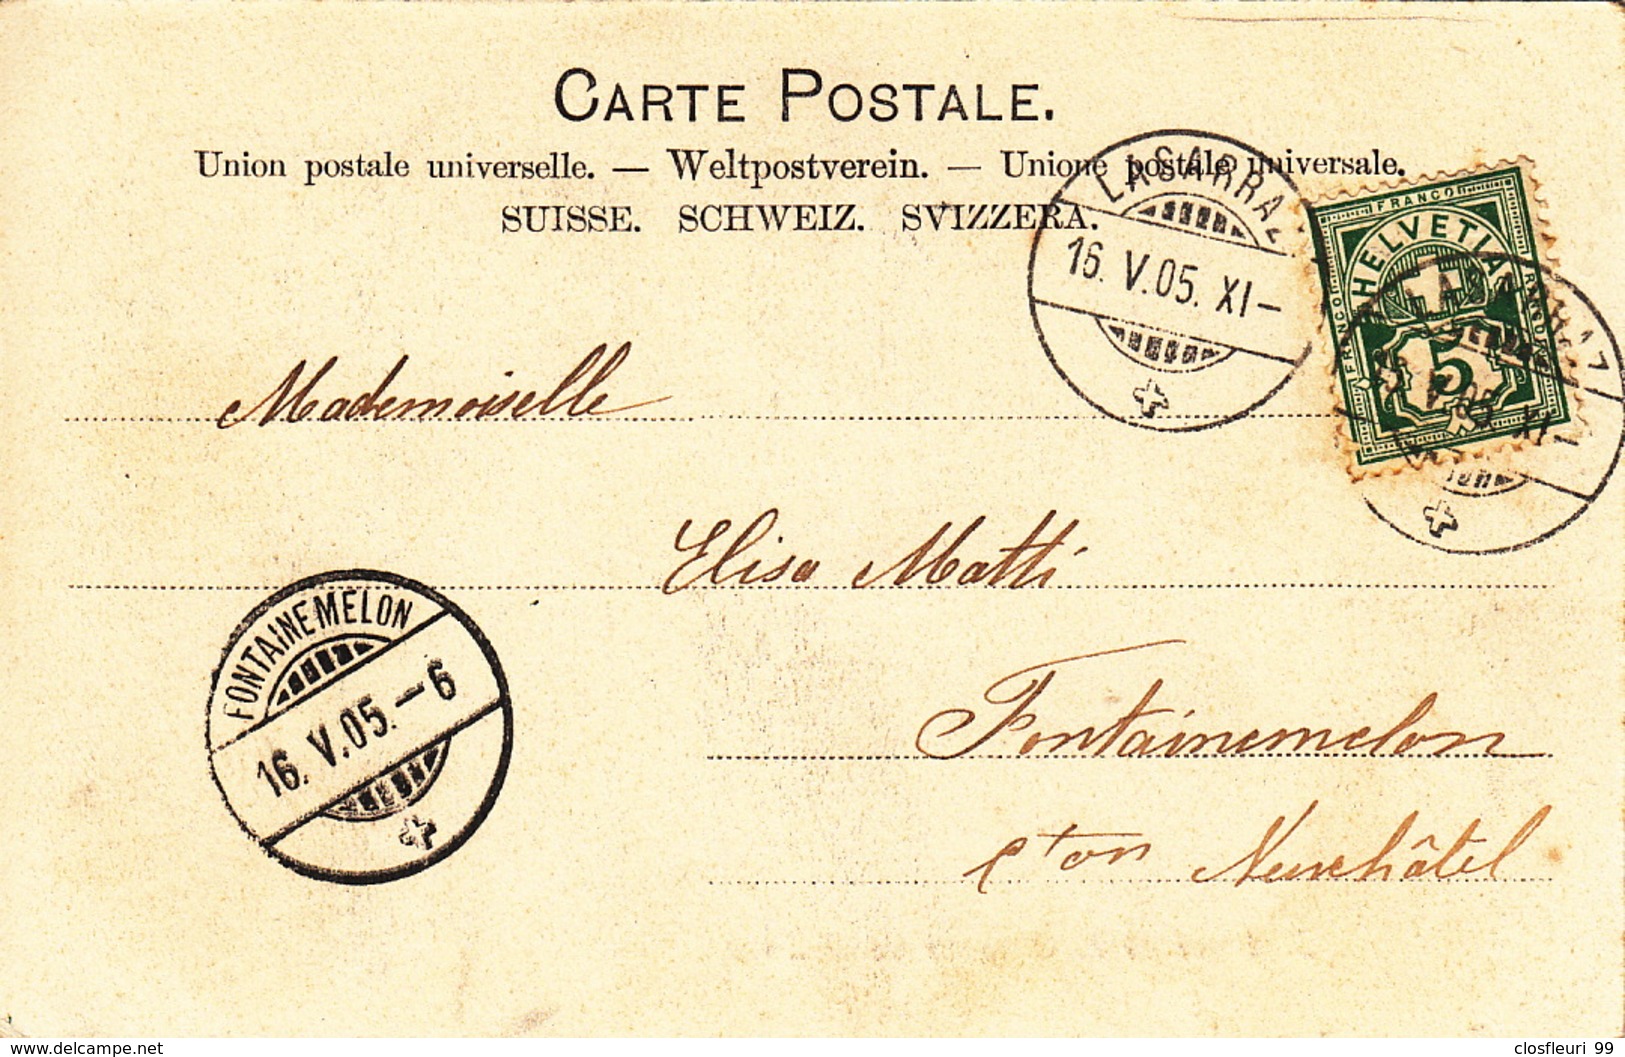 CARTE POSTALE.
Union postale universelle. — Weltpostverein. — Unione postale universale.
SUISSE. SCHWEIZ. SVIZZERA.
LASARRAZ
16. V. 05. XI–
FRANCO
HELVETIA
FRANCO
5
LASARRAZ
V. 05. XI–
Mademoiselle
Elisa Matti
FONTAINEMELON
16. V. 05. – 6
Fontainemelon
cton Neuchâtel
www.delcampe.net
closfleuri 99